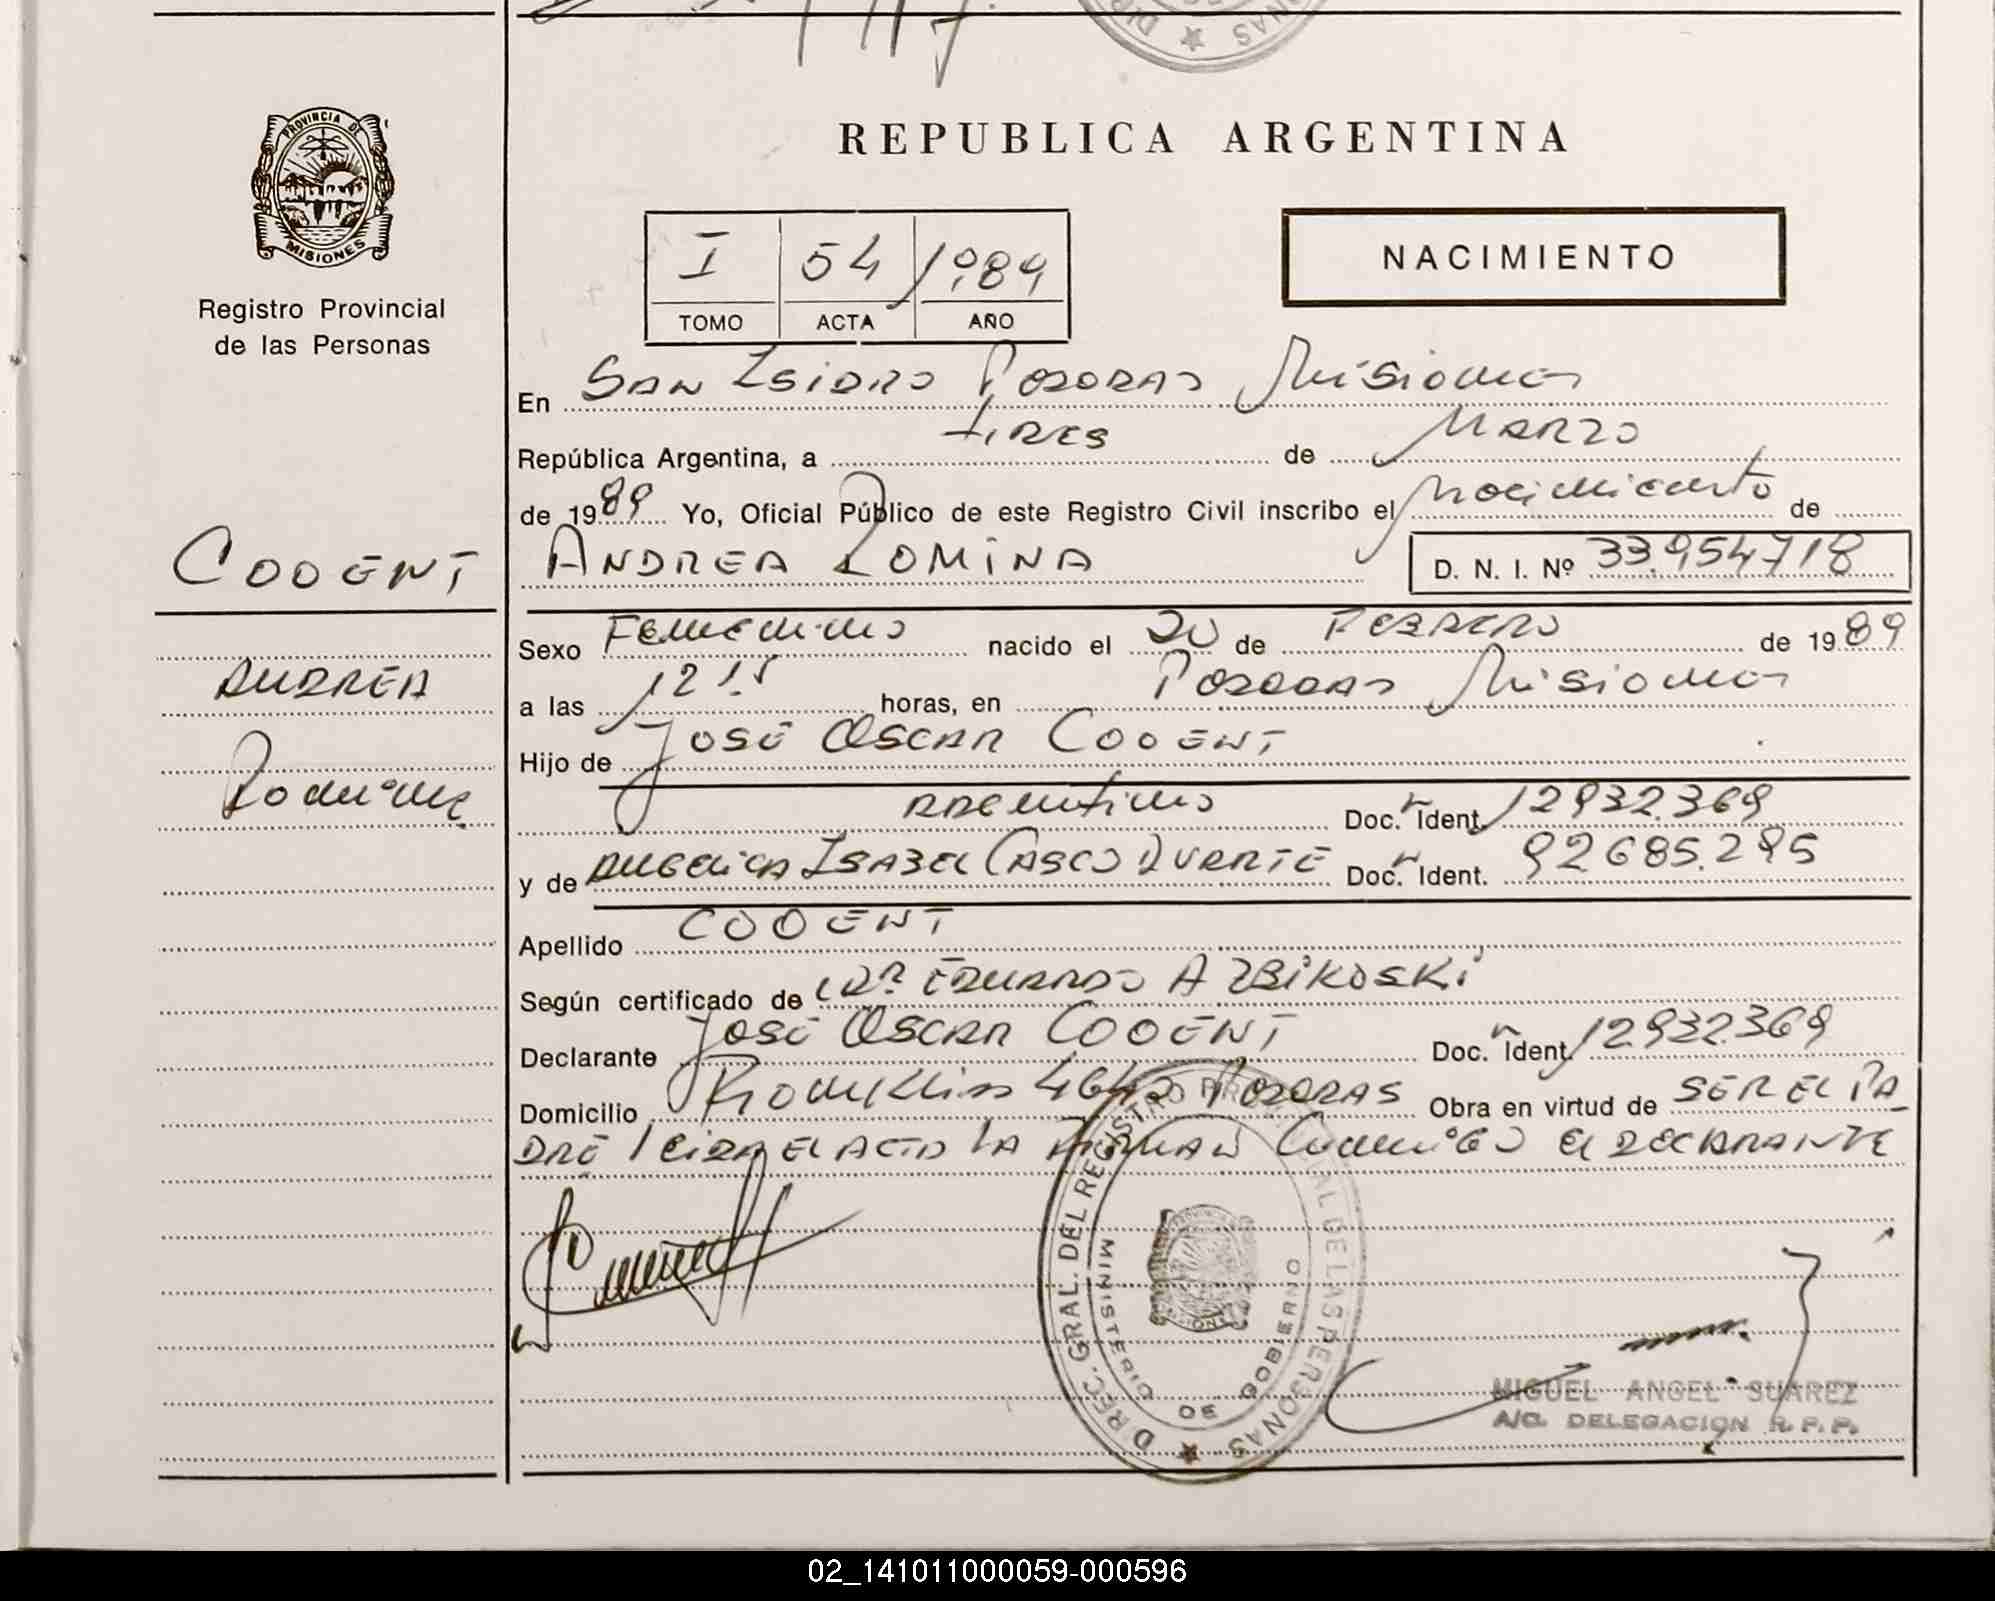 PROVINCIA DE
MISIONES
Registro Provincial
de las Personas
COOENT
ANDREA
Romina
REPUBLICA ARGENTINA
NACIMIENTO
I 54 1989
TOMO ACTA AÑO
En San Isidro Posadas Misiones
República Argentina, a tres de Marzo
de 1989 Yo, Oficial Público de este Registro Civil inscribo el Nacimiento de
ANDREA ROMINA D. N. I. Nº 33.954718
Sexo Femenino nacido el 20 de Febrero de 1989
a las 12 15 horas, en Posadas Misiones
Hijo de José Oscar COOENT
Argentino Doc. Ident. 12932.369
y de Angelica Isabel Casco Duarte Doc. Ident. 92685.295
Apellido COOENT
Según certificado de Dr Eduardo A Zbikoski
Declarante José Oscar COOENT Doc. Ident. 12932369
Domicilio 4640 Posadas Obra en virtud de ser el pa
dre leida el acta la firman conmigo el declarante
DIREC. GRAL. DEL REGISTRO PROVINCIAL DE LAS PERSONAS
MINISTERIO DE GOBIERNO
MIGUEL ANGEL SUAREZ
A/C. DELEGACION R. P. P.
02_141011000059-000596